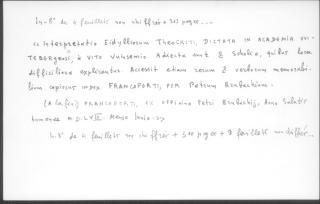 in-8° de 4 feuillets non chiffrés + 303 pages ...
« Interpretatio Eidylliorum Theocriti, dictata in Academia Vui-
tebergensi, à Vito Vuinsemio. Adiecta sunt & Scholia, quibus loca
difficiliora explicantur. Accessit etiam rerum & verborum memorabi-
lium copiosus index Francoforti, per Petrum Brubachium.
(A la fin) Francoforti, ex officina Petri Brubachij, Anno Salutis
humanae M.D.LVIII. Mense Iunio. »
in-8° de 4 feuillets non chiffrés + 300 pages + 8 feuillets non chiffrés...